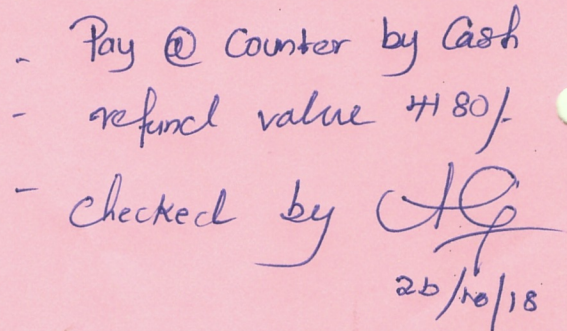 - Pay @ Counter by Cash
- refund value 4180/-
- checked by